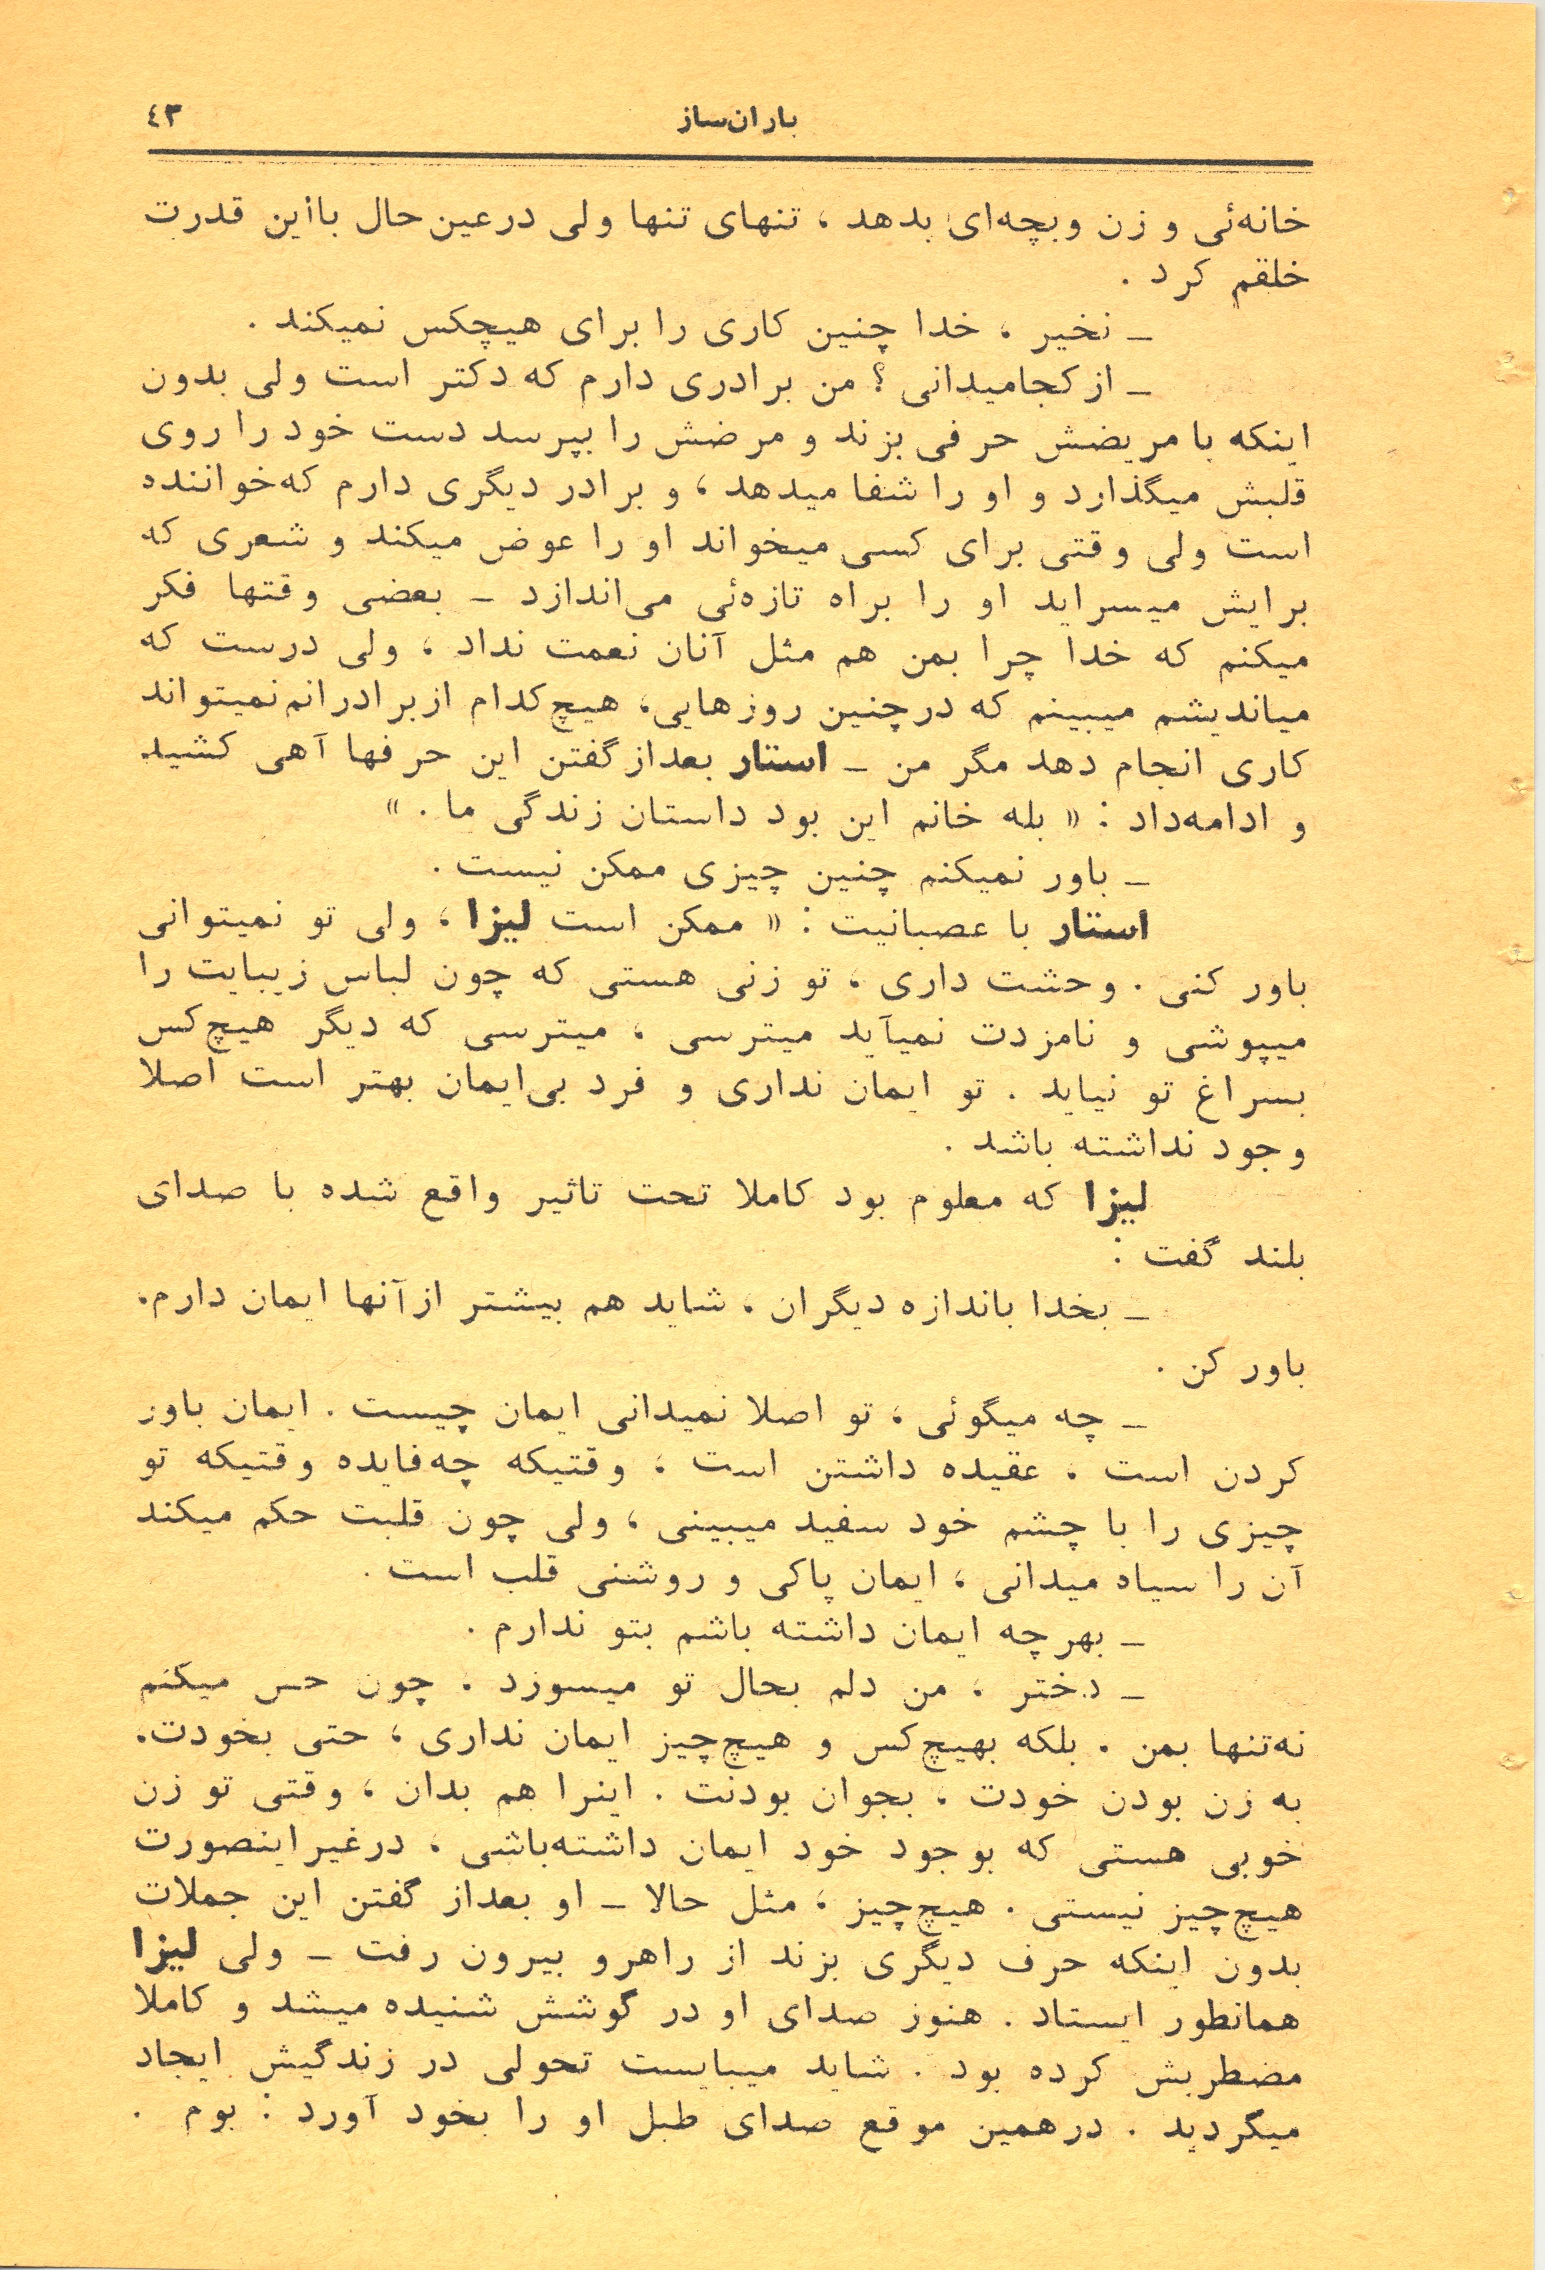 باران‌ساز
٤٣
خانه‌ئی و زن وبچه‌ای بدهد ، تنهای تنها ولی درعین‌حال بااین قدرت
خلقم کرد .
ـ نخیر ، خدا چنین کاری را برای هیچکس نمیکند .
ـ ازکجامیدانی ؟ من برادری دارم که دکتر است ولی بدون
اینکه بامریضش حرفی بزند و مرضش را بپرسد دست خود را روی
قلبش میگذارد و او را شفا میدهد ، و برادر دیگری دارم که‌خواننده
است ولی وقتی برای کسی میخواند او را عوض میکند و شعری که
برایش میسراید او را براه تازه‌ئی می‌اندازد ـ بعضی وقتها فکر
میکنم که خدا چرا بمن هم مثل آنان نعمت نداد ، ولی درست که
میاندیشم میبینم که درچنین روزهایی، هیچ‌کدام ازبرادرانم‌نمیتواند
کاری انجام دهد مگر من ـ استار بعداز گفتن این حرفها آهی کشید
و ادامه‌داد : « بله خانم این بود داستان زندگی ما . »
ـ باور نمیکنم چنین چیزی ممکن نیست .
استار با عصبانیت : « ممکن است لیزا ، ولی تو نمیتوانی
باور کنی . وحشت داری ، تو زنی هستی که چون لباس زیبایت را
میپوشی و نامزدت نمیآید میترسی ، میترسی که دیگر هیچ‌کس
بسراغ تو نیاید . تو ایمان نداری و فرد بی‌ایمان بهتر است اصلا
وجود نداشته باشد .
لیزا که معلوم بود کاملا تحت تاثیر واقع شده با صدای
بلند گفت :
ـ بخدا باندازه دیگران ، شاید هم بیشتر ازآنها ایمان دارم.
باور کن .
ـ چه میگوئی ، تو اصلا نمیدانی ایمان چیست . ایمان باور
کردن است ، عقیده داشتن است ، وقتیکه چه‌فایده وقتیکه تو
چیزی را با چشم خود سفید میبینی ، ولی چون قلبت حکم میکند
آن را سیاه میدانی ، ایمان پاکی و روشنی قلب است .
ـ بهرچه ایمان داشته باشم بتو ندارم .
ـ دختر ، من دلم بحال تو میسوزد . چون حس میکنم
نه‌تنها بمن . بلکه بهیچ‌کس و هیچ‌چیز ایمان نداری ، حتی بخودت.
به زن بودن خودت ، بجوان بودنت . اینرا هم بدان ، وقتی تو زن
خوبی هستی که بوجود خود ایمان داشته‌باشی ، درغیراینصورت
هیچ‌چیز نیستی . هیچ‌چیز ، مثل حالا ـ او بعداز گفتن این جملات
بدون اینکه حرف دیگری بزند از راهرو بیرون رفت ـ ولی لیزا
همانطور ایستاد . هنوز صدای او در گوشش شنیده میشد و کاملا
مضطربش کرده بود . شاید میبایست تحولی در زندگیش ایجاد
میگردید . درهمین موقع صدای طبل او را بخود آورد : بوم .